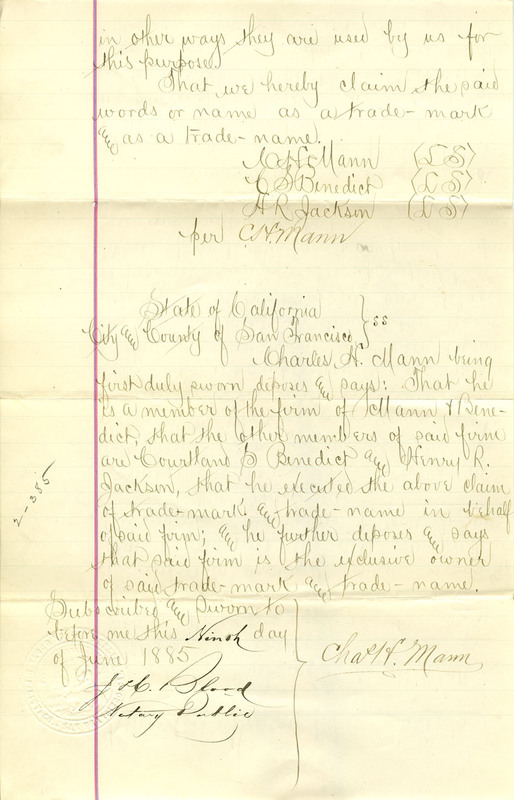 in other ways they are used by us for
this purpose.
That we hereby claim the said
words or name as a trade-mark
and as a trade-name.
C. H. Mann (L S)
C S Benedict (L S)
H R Jackson (L S)
per C. H. Mann
State of California
City and County of San Francisco } ss
Charles H. Mann being
first duly sworn deposes and says: That he
is a member of the firm of Mann & Bene-
dict, that the other members of said firm
are Courtland S Benedict and Henry R.
Jackson, that he executed the above claim
of trade-mark and trade-name in behalf
of said firm; and he further deposes and says
that said firm is the exclusive owner
of said trade-mark and trade-name.
2-385
Subscribed and sworn to
before me this Ninth day
of June 1885
Chas H. Mann
J. H. Blood
Notary Public